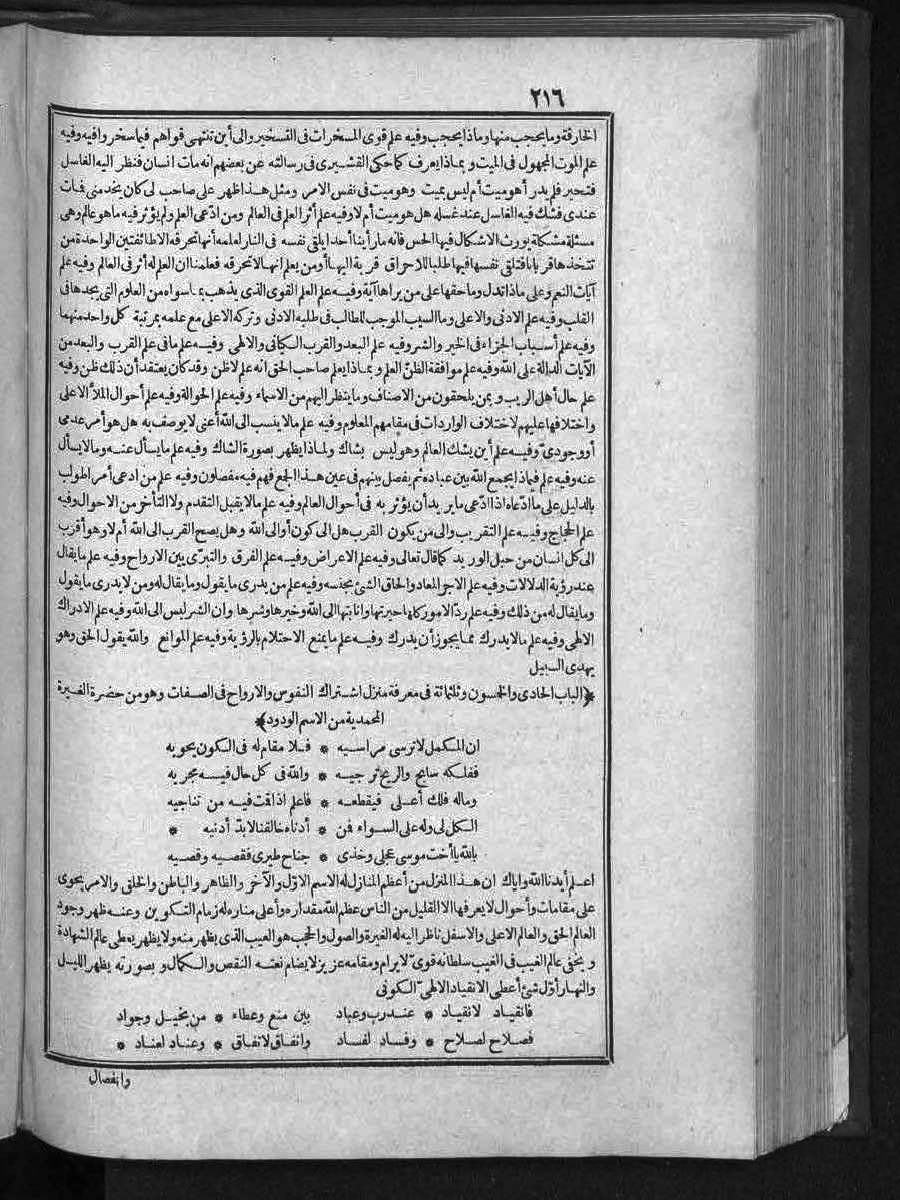 ٢١٦
الخارقة وما يحجب منها وماذا يحجب وفيه علم قوى المسخرات فى التسخير والى أين تنتهى قواهم فيما سخروا فيه وفيه
علم الموت المجهول فى الميت و بماذا يعرف كما حكى القشيرى فى رسالته عن بعضهم انه مات انسان فنظر اليه الغاسل
فتحير فلم يدر أهو ميت أم ليس بميت وهو ميت فى نفس الامر ومثل هذا ظهر على صاحب لى كان يخدمنى فمات
عندى فشك فيه الغاسل عند غسله هل هو ميت أم لا وفيه علم أثر العلم فى العالم ومن ادّعى العلم ولم يؤثر فيه ما هو عالم وهى
مسئلة مشكلة يورث الاشكال فيها الحس فانه ما رأينا أحدا يلقى نفسه فى النار لعلمه أنها تحرقه الا طائفتين الواحدة من
تتخذها قربانا فتلقى نفسها فيها طلبا للاحراق قربة اليها أو من يعلم انها لا تحرقه فعلمنا ان العلم له أثر فى العالم وفيه علم
آيات النعم وعلى ماذا تدل وما حقها على من يراها آية وفيه علم العلم القوى الذى يذهب بما سواه من العلوم التى يجدها فى
القلب وفيه علم الادنى والاعلى وما السبب الموجب للطالب فى طلبه الادنى وتركه الاعلى مع علمه بمرتبة كل واحد منهما
وفيه علم أسباب الجزاء فى الخير والشر وفيه علم البعد والقرب الكيانى والالهى وفيه علم ما فى علم القرب والبعد من
الآيات الدالة على الله وفيه علم موافقة الظنّ العلم و بماذا يعلم صاحب الحق انه علم لا ظن وقد كان يعتقد أن ذلك ظن وفيه
علم حال أهل الريب و بمن يلحقون من الاصناف وما ينتظر اليهم من الاسماء وفيه علم الحوالة وفيه علم أحوال الملأ الاعلى
واختلافها عليهم لاختلاف الواردات فى مقامهم المعلوم وفيه علم ما لا ينسب الى الله أعنى لا يوصف به هل هو أمر عدمى
أو وجودىّ وفيه علم أين يشك العالم وهو ليس بشاك ولماذا يظهر بصورة الشاك وفيه علم ما يسأل عنه وما لا يسأل
عنه وفيه علم فماذا يجمع الله بين عباده ثم يفصل بينهم فى عين هذا الجمع فهم فيه مفصلون وفيه علم من ادعى أمر اطولب
بالدليل على ما ادّعاه اذا ادّعى ما يريد أن يؤثر به فى أحوال العالم وفيه علم ما لا يقبل التقدم ولا التأخر من الاحوال وفيه
علم الحجاج وفيه علم التقريب والى من يكون القرب هل الى كون أو الى الله وهل يصح القرب الى الله أم لا وهو أقرب
الى كل انسان من حبل الوريد كما قال تعالى وفيه علم الاعراض وفيه علم الفرق والتبرّى بين الارواح وفيه علم ما يقال
عند رؤية الدلالات وفيه علم الاجر المعاد والحاق الشئ بجنسه وفيه علم من يدرى ما يقول وما يقال له ومن لا يدرى ما يقول
وما يقال له من ذلك وفيه علم ردّ الامور كلها حيرتها وانابتها الى الله وخيرها وشرها وان الشر ليس الى الله وفيه علم الادراك
الالهى وفيه علم ما لا يدرك مما يجوز أن يدرك وفيه علم ما يمنع الاحتلام بالرؤية وفيه علم الموانع والله يقول الحق وهو
يهدى السبيل
﴿الباب الحادى والخمسون وثلثمائة فى معرفة منزل اشتراك النفوس والارواح فى الصفات وهو من حضرة الغيرة
المحمدية من الاسم الودود﴾
ان المكمل لا ترسى مراسيه * فلا مقام له فى الكون يحويه
ففلكه سابح والريح تزجيه * والله فى كل حال فيه مجريه
وماله فلك أعلى فيقطعه * فاعلم اذا قت فيه من تناجيه
الكل لى وله على السواء فن * أدناه خالقنا لا بدّ أدنيه *
بالله يا أخت موسى عجلى وخذى * جناح طيرى فقصيه وقصيه
اعلم أيدنا الله واياك ان هذا المنزل من أعظم المنازل له الاسم الاوّل والآخر والظاهر والباطن والخلق والامر يحوى
على مقامات وأحوال لا يعرفها الا القليل من الناس عظم الله مقداره وأعلى مناره له زمام التكوين وعنه ظهر وجود
العالم الحق والعالم الاعلى والاسفل ناظر اليه له الغيرة والصول والحجب هو الغيب الذى يظهر منه ولا يظهر يعطى عالم الشهادة
و يخفى عالم الغيب فى الغيب سلطانه قوىّ لا يرام ومقامه عزيز لا يضام نعته النقص والكمال و بصورته يظهر الليل
والنهار أوّل شئ أعطى الانقياد الالهىّ الكونى
فانقياد لانقياد * عند رب وعباد بين منع وعطاء * من بخيل وجواد
فصلاح لصلاح * وفساد لفساد واتفاق لاتفاق * وعناد لعناد *
وانفصال